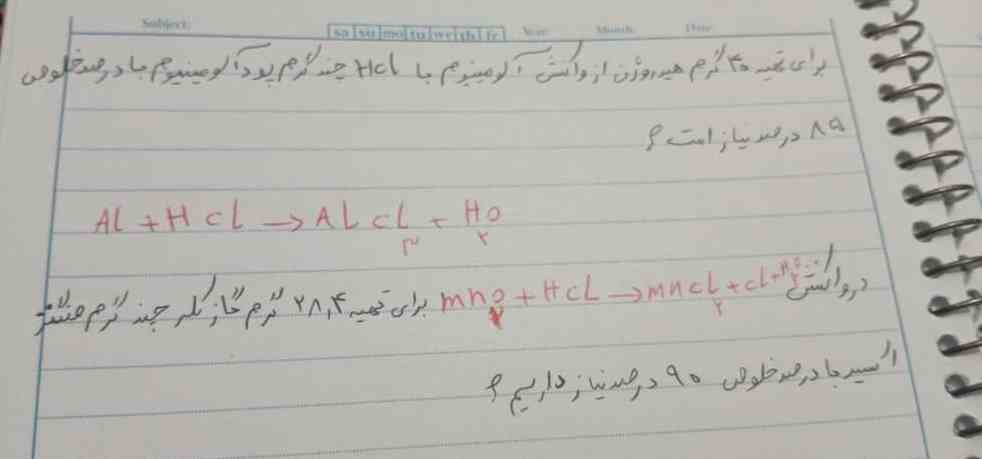 Subject: sa su mo tu we th fr Year: Month: Date:
برای تهیه ۳۰ گرم هیدروژن از واکنش آلومینیوم با HCl چند گرم پودر آلومینیوم با درصد خلوص
۸۵ درصد نیاز است ؟
Al + HCl → AlCl۳ + H۲O
در واکنش mno۲ + HCl → mnCl۲ + Cl + H۲O برای تهیه ۲۸,۴ گرم گاز کلر چند گرم منگنز
اکسید با درصد خلوص ۹۰ درصد نیاز داریم ؟